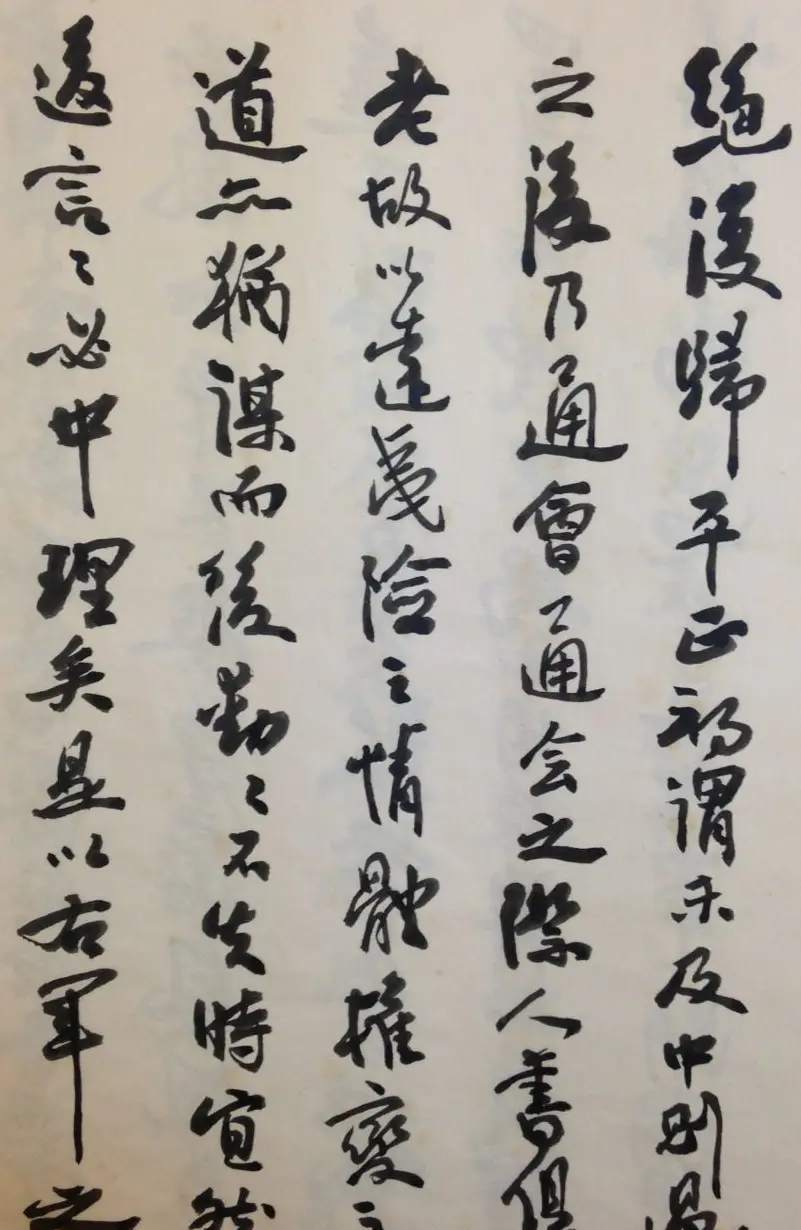 絕復歸平正初謂未及中則過
之後乃通會通会之際人書俱
老故以達夷險之情體權變之
道亦猶謀而後動々不失時宜然
後言々必中理矣是以右軍之